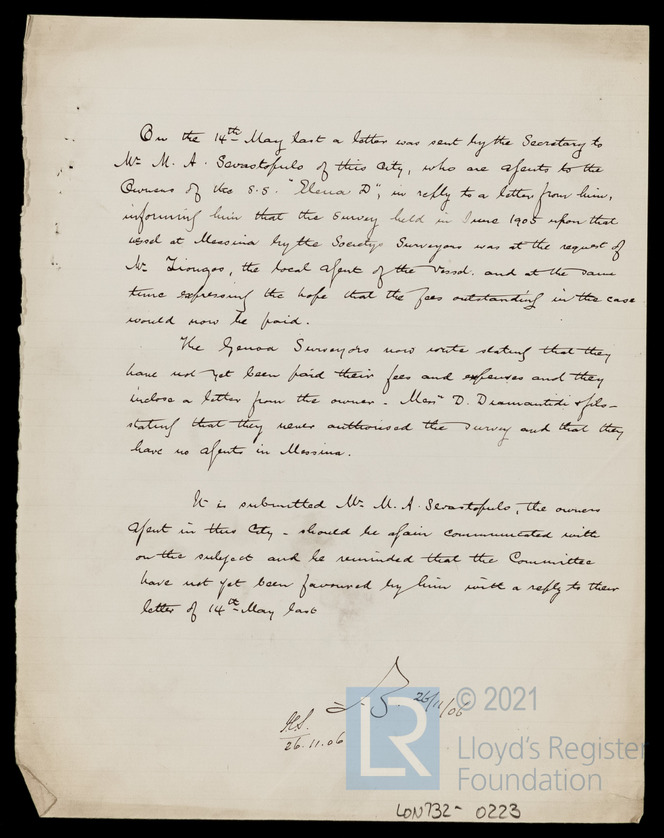 On the 14th May last a letter was sent by the Secretary to
Mr. M. A. Sevastopulo of this City, who are agents to the
Owners of the S.S. "Elena D", in reply to a letter from him,
informing him that the survey held in June 1905 upon that
vessel at Messina by the Society's Surveyors was at the request of
Mr. Liongos, the local agent of the vessel. and at the same
time expressing the hope that the fees outstanding in the case
would now be paid.
The Genoa Surveyors now write stating that they
have not yet been paid their fees and expenses and they
inclose a letter from the owner - Messrs D. Diamantidi & fils -
stating that they never authorised the survey and that they
have no agents in Messina.
It is submitted Mr. M. A. Sevastopulo, the owners
agent in this City - should be again communicated with
on the subject and be reminded that the Committee
have not yet been favoured by him with a reply to their
letter of 14th May last
26/11/06
26.11.06
LR
© 2021
Lloyd's Register
Foundation
LON732- 0223